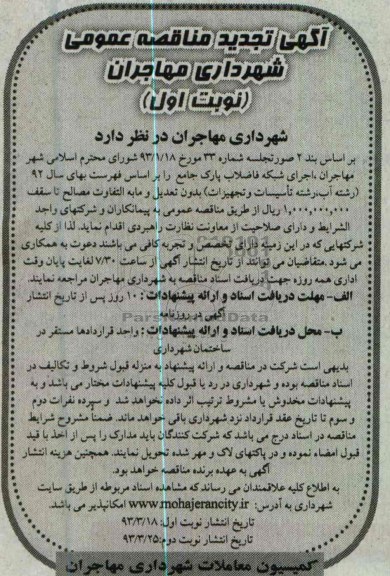 آگهی تجدید مناقصه عمومی
شهرداری مهاجران
(نوبت اول)
شهرداری مهاجران در نظر دارد
بر اساس بند ۲ صورتجلسه شماره ۳۳ مورخ ۹۳/۱/۱۸ شورای محترم اسلامی شهر
مهاجران ،اجرای شبکه فاضلاب پارک جامع را بر اساس فهرست بهای سال ۹۲
(رشته آب،رشته تأسیسات وتجهیزات) بدون تعدیل و مابه التفاوت مصالح تا سقف
۱,۰۰۰,۰۰۰,۰۰۰ ریال از طریق مناقصه عمومی به پیمانکاران و شرکتهای واجد
الشرایط و دارای صلاحیت از معاونت نظارت راهبردی اقدام نماید. لذا از کلیه
شرکتهایی که در این زمینه دارای تخصص و تجربه کافی می باشند دعوت به همکاری
می شود .متقاضیان می توانند از تاریخ انتشار آگهی از ساعت ۷/۳۰ لغایت پایان وقت
اداری همه روزه جهت دریافت اسناد مناقصه به شهرداری مهاجران مراجعه نمایند.
الف- مهلت دریافت اسناد و ارائه پیشنهادات : ۱۰ روز پس از تاریخ انتشار
آگهی در روزنامه
ب- محل دریافت اسناد و ارائه پیشنهادات : واحد قراردادها مستقر در
ساختمان شهرداری
بدیهی است شرکت در مناقصه و ارائه پیشنهاد به منزله قبول شروط و تکالیف در
اسناد مناقصه بوده و شهرداری در رد یا قبول کلیه پیشنهادات مختار می باشد و به
پیشنهادات مخدوش یا مشروط ترتیب اثر داده نخواهد شد و سپرده نفرات دوم
و سوم تا تاریخ عقد قرارداد نزد شهرداری باقی خواهد ماند. ضمناً مشروح شرایط
مناقصه در اسناد درج می باشد که شرکت کنندگان باید مدارک را پس از اخذ با قید
قبول امضاء نموده و در پاکتهای لاک و مهر شده تحویل نمایند. همچنین هزینه انتشار
آگهی به عهده برنده مناقصه خواهد بود.
به اطلاع کلیه علاقمندان می رساند که مشاهده اسناد مربوطه از طریق سایت
شهرداری به آدرس: www.mohajerancity.ir امکانپذیر می باشد.
تاریخ انتشار نوبت اول: ۹۳/۳/۱۸
تاریخ انتشار نوبت دوم:۹۳/۳/۲۵
کمیسیون معاملات شهرداری مهاجران